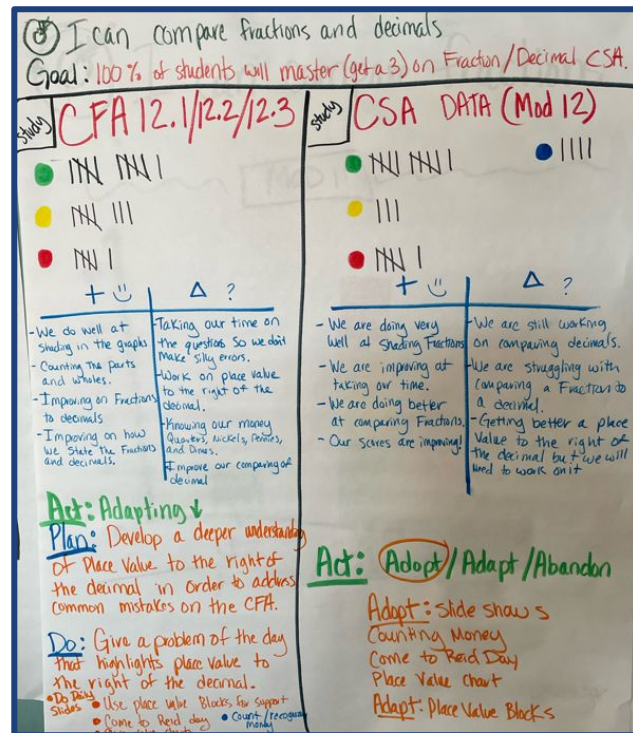 I can compare fractions and decimals
Goal: 100% of students will master (get a 3) on Fraction/Decimal CSA.
Study
CFA 12.1/12.2/12.3
+ ☺
Δ ?
- We do well at
Shading in the graphs
- Counting The parts
and wholes.
- Improving on Fractions
to decimals
- Improving on how
we State the Fractions
and decimals.
- Taking our time on
the questions So we don't
Make Silly errors.
- Work on place value
to the right of the
decimal.
- Knowing our money
Quarters, Nickels, Pennies,
and Dimes.
- Improve our comparing of
decimal
Act: Adapting ↓
Plan: Develop a deeper understanding
of Place Value to the right of
the decimal in order to address
common mistakes on the CFA.
Do: Give a problem of the day
that highlights place value to
the right of the decimal.
• Do Daily
Slides
• Use place value Blocks for support
• Come to Reid day
• Count/recognize
money
Study
CSA DATA (Mod 12)
+ ☺
Δ ?
- We are doing very
well at shading Fractions
- We are improving at
taking our time.
- We are doing better
at comparing Fractions.
- Our scores are improving!
- We are still working
on comparing decimals.
- We are struggling with
comparing a Fraction to
a decimal.
- Getting better a place
Value to the right of
the decimal but we will
need to work on it
Act: Adopt/Adapt/Abandon
Adopt: Slide shows
Counting Money
Come to Reid Day
Place Value Chart
Adapt: Place Value Blocks